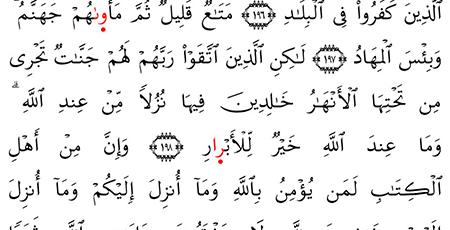 ٱلَّذِينَ كَفَرُوا۟ فِى ٱلْبِلَـٰدِ ﴿١٩٦﴾ مَتَـٰعٌ قَلِيلٌ ثُمَّ مَأْوَىٰهُمْ جَهَنَّمُ ۚ
وَبِئْسَ ٱلْمِهَادُ ﴿١٩٧﴾ لَـٰكِنِ ٱلَّذِينَ ٱتَّقَوْا۟ رَبَّهُمْ لَهُمْ جَنَّـٰتٌ تَجْرِى
مِن تَحْتِهَا ٱلْأَنْهَـٰرُ خَـٰلِدِينَ فِيهَا نُزُلًا مِّنْ عِندِ ٱللَّهِ ۗ
وَمَا عِندَ ٱللَّهِ خَيْرٌ لِّلْأَبْرَارِ ﴿١٩٨﴾ وَإِنَّ مِنْ أَهْلِ
ٱلْكِتَـٰبِ لَمَن يُؤْمِنُ بِٱللَّهِ وَمَآ أُنزِلَ إِلَيْكُمْ وَمَآ أُنزِلَ